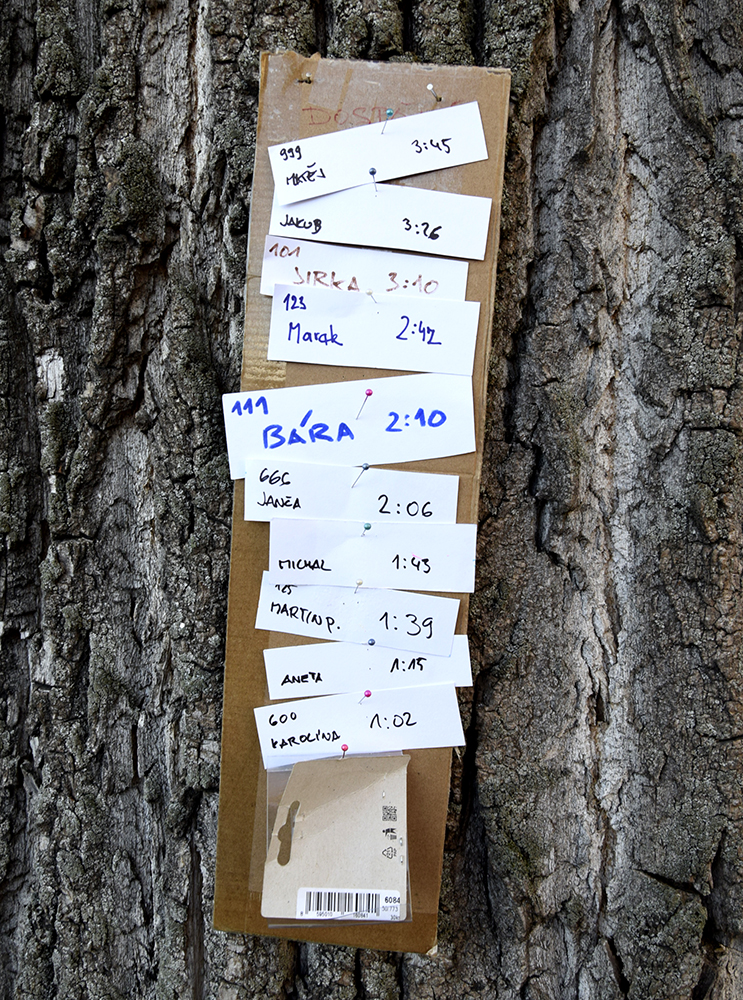 999
MATĚJ 3:45
JAKUB 3:26
101
JIRKA 3:10
123
Marek 2:42
111
BÁRA 2:10
666
JANČA 2:06
MICHAL 1:43
125
MARTIN P. 1:39
ANETA 1:15
600
KAROLÍNA 1:02
6084